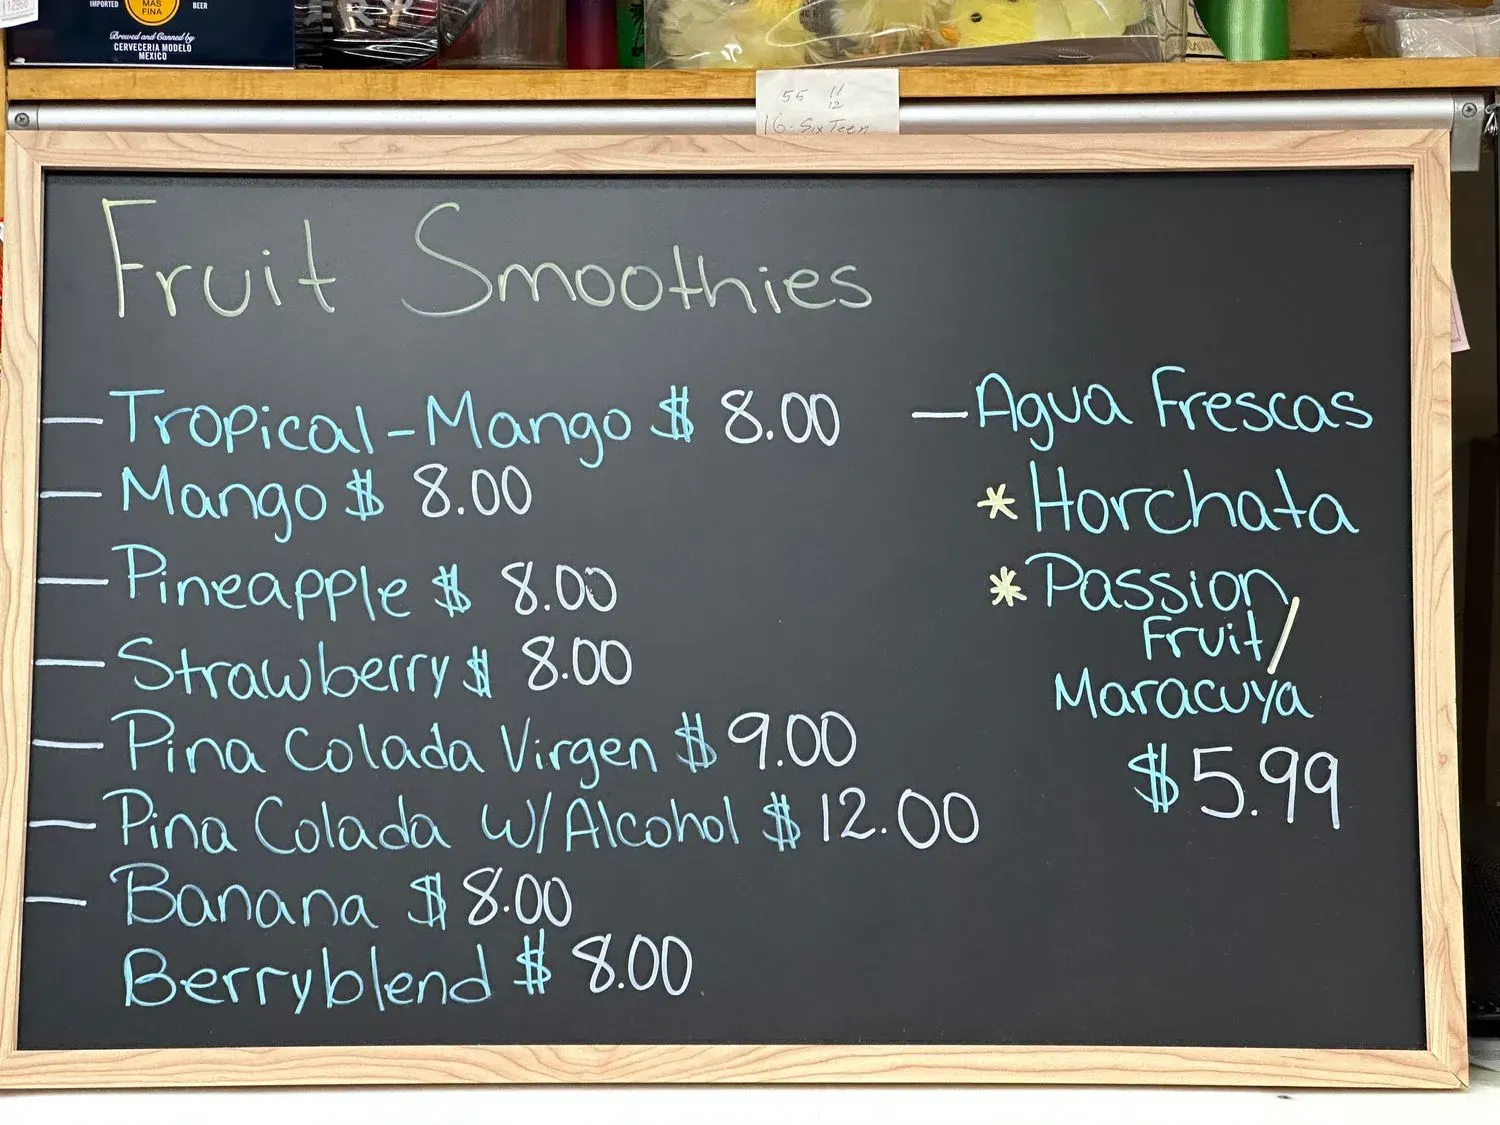 IMPORTED
MAS
FINA
BEER
Brewed and Canned by
CERVECERIA MODELO
MEXICO
55 11
12
16-SixTeen
Fruit Smoothies
— Tropical-Mango $ 8.00
— Mango $ 8.00
— Pineapple $ 8.00
— Strawberry $ 8.00
— Pina Colada Virgen $ 9.00
— Pina Colada W/Alcohol $ 12.00
— Banana $ 8.00
Berryblend $ 8.00
— Agua Frescas
* Horchata
* Passion
Fruit/
Maracuya
$5.99